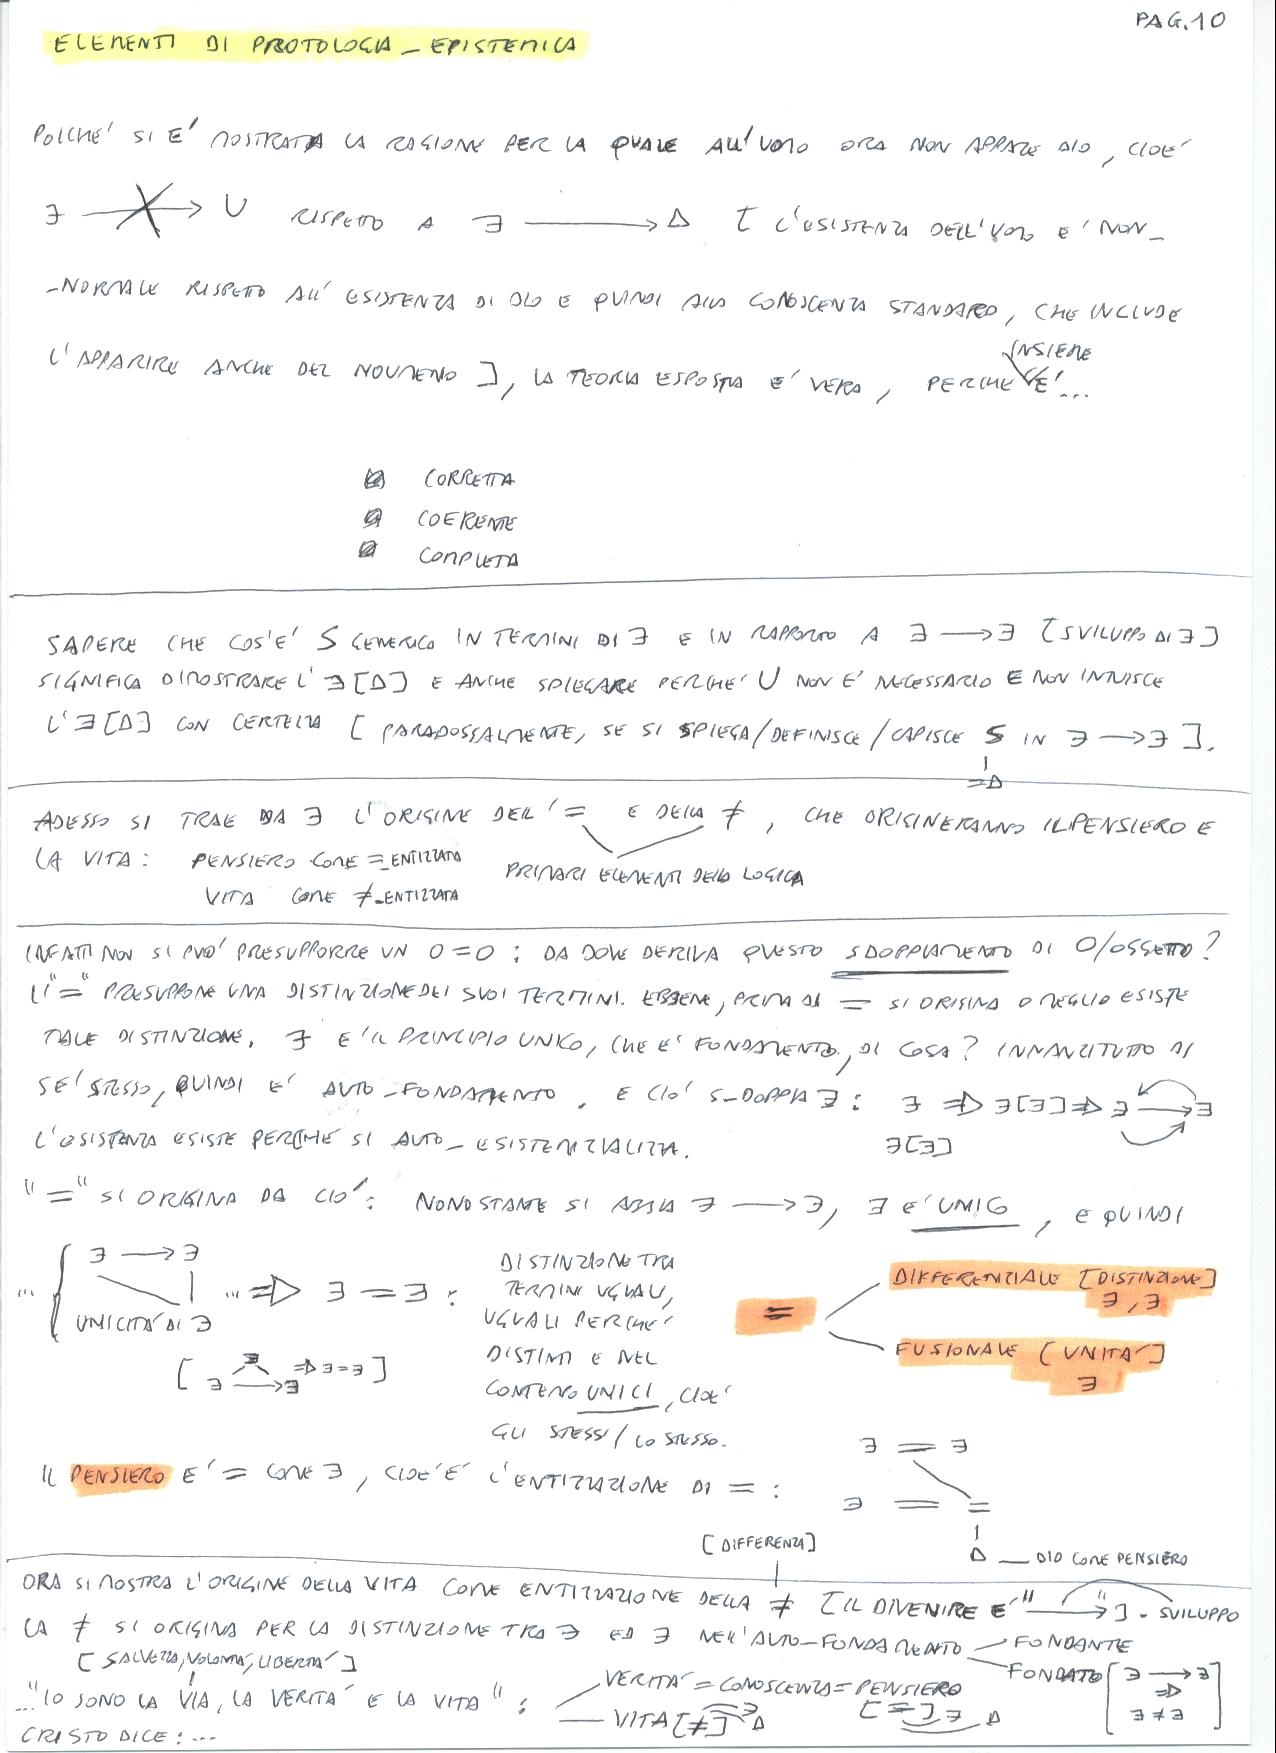 PAG.10
ELEMENTI DI PROTOLOGIA_EPISTEMICA
POICHE' SI E' MOSTRATA LA RAGIONE PER LA QUALE ALL'UOMO ORA NON APPARE DIO, CIOE'
∃ ⟶ U RISPETTO A ∃ ⟶ Δ [ L'ESISTENZA DELL'UOMO E' NON_
_NORMALE RISPETTO ALL'ESISTENZA DI DIO E QUINDI ALLA CONOSCENZA STANDARD, CHE INCLUDE
L'APPARIRE ANCHE DEL NOUMENO ], LA TEORIA ESPOSTA E' VERA, PERCHE' E' INSIEME...
CORRETTA
COERENTE
COMPLETA
SAPERE CHE COS'E' S GENERICO IN TERMINI DI ∃ E IN RAPPORTO A ∃ ⟶ ∃ [SVILUPPO DI ∃]
SIGNIFICA DIMOSTRARE L'∃[Δ] E ANCHE SPIEGARE PERCHE' U NON E' NECESSARIO E NON INTUISCE
L'∃[Δ] CON CERTEZZA [ PARADOSSALMENTE, SE SI SPIEGA/DEFINISCE/CAPISCE S IN ∃ ⟶ ∃ ].
=Δ
ADESSO SI TRAE DA ∃ L'ORIGINE DELL'= E DELLA ≠, CHE ORIGINERANNO IL PENSIERO E
LA VITA: PENSIERO COME =_ENTIZZATO
PRIMARI ELEMENTI DELLA LOGICA
VITA COME ≠_ENTIZZATA
INFATTI NON SI PUO' PRESUPPORRE UN O=O : DA DOVE DERIVA QUESTO SDOPPIAMENTO DI O/OGGETTO?
L'"=" PRESUPPONE UNA DISTINZIONE DEI SUOI TERMINI. EBBENE, PRIMA DI = SI ORIGINA O MEGLIO ESISTE
TALE DISTINZIONE. ∃ E' IL PRINCIPIO UNICO, CHE E' FONDAMENTO, DI COSA? INNANZITUTTO DI
SE' STESSO, QUINDI E' AUTO_FONDAMENTO, E CIO' S_DOPPIA ∃ : ∃ ⇒ ∃[∃] ⇒ ∃ ⟶ ∃
L'ESISTENZA ESISTE PERCHE' SI AUTO_ESISTENZIALIZZA. ∃[∃]
"=" SI ORIGINA DA CIO': NONOSTANTE SI ABBIA ∃ ⟶ ∃, ∃ E' UNICO, E QUINDI
... { ∃ ⟶ ∃
UNICITA' DI ∃ ... ⇒ ∃ = ∃ :
[ ∃ ∃ ⟶ ∃ ⇒ ∃=∃ ]
DISTINZIONE TRA
TERMINI UGUALI,
UGUALI PERCHE'
DISTINTI E NEL
CONTEMPO UNICI, CIOE'
GLI STESSI / LO STESSO.
=
DIFFERENZIALE [DISTINZIONE]
∃, ∃
FUSIONALE [UNITA']
∃
IL PENSIERO E' = COME ∃, CIOE' E' L'ENTIZZAZIONE DI = :
∃ = ∃
∃ = =
Δ _ DIO COME PENSIERO
[DIFFERENZA]
ORA SI MOSTRA L'ORIGINE DELLA VITA COME ENTIZZAZIONE DELLA ≠ [IL DIVENIRE E' "⟶"]. SVILUPPO
LA ≠ SI ORIGINA PER LA DISTINZIONE TRA ∃ ED ∃ NELL'AUTO_FONDAMENTO FONDANTE
FONDATO [ ∃ ⟶ ∃ ⇒ ∃ ≠ ∃ ]
[SALVEZZA, VOLONTA', LIBERTA']
..."IO SONO LA VIA, LA VERITA' E LA VITA" :
VERITA' = CONOSCENZA = PENSIERO
[=] ∃ Δ
VITA [≠] ∃ Δ
CRISTO DICE : ...